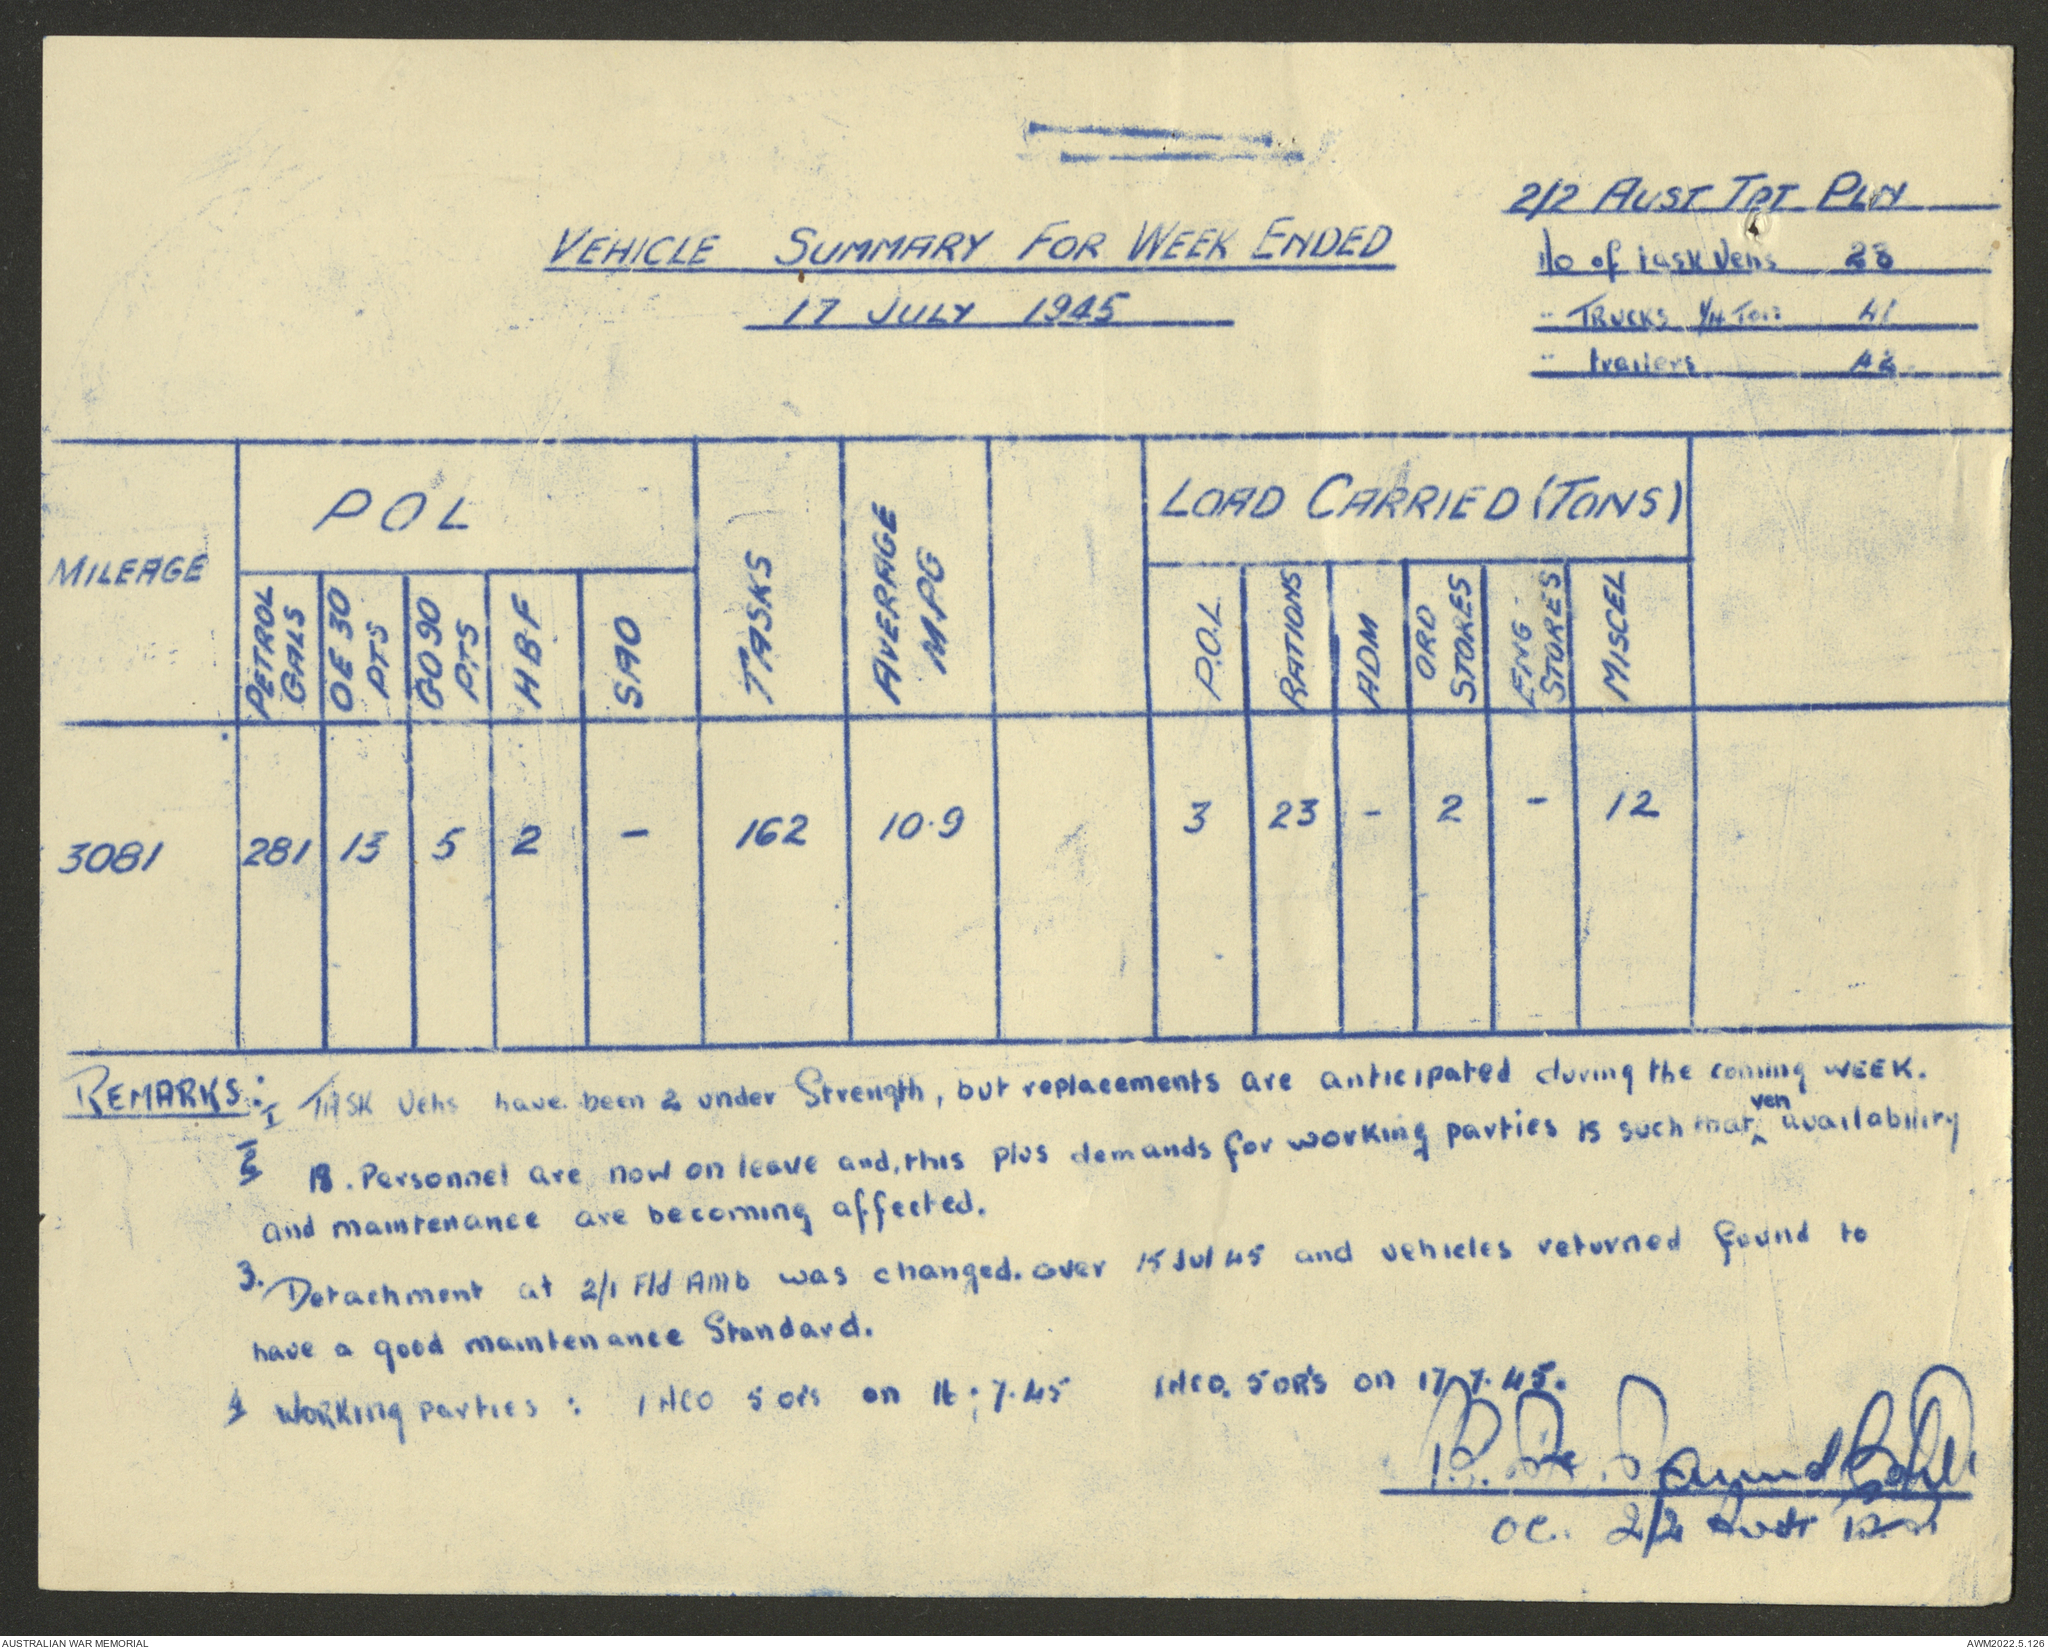 2/2 AUST TPT PLN
VEHICLE SUMMARY FOR WEEK ENDED
17 JULY 1945
No of task Vehs 28
" TRUCKS 1/4 Ton 41
" trailers
MILEAGE
POL
PETROL GALS
OE 30 PTS
GO 90 PTS
HBF
SAO
TASKS
AVERAGE MPG
LOAD CARRIED (TONS)
P.O.L
RATIONS
ADM
ORD STORES
ENG STORES
MISCEL
3081 281 13 5 2 – 162 10.9 3 23 – 2 – 12
REMARKS: 1 TASK Vehs have been 2 under Strength, but replacements are anticipated during the coming WEEK.
2 18. Personnel are now on leave and, this plus demands for working parties is such that veh availability
and maintenance are becoming affected.
3. Detachment at 2/1 Fld Amb was changed. over 15 Jul 45 and vehicles returned found to
have a good maintenance Standard.
4 WORKing parties: 1 NCO 5 ORs on 16.7.45 1 NCO. 5 OR'S on 17.7.45.
OC. 2/2 Aust
AUSTRALIAN WAR MEMORIAL
AWM2022.5.126